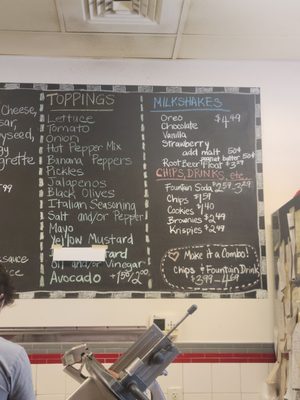 Cheese,
TOPPINGS
Lettuce
Tomato
Onion
Hot Pepper Mix
Banana Peppers
Pickles
Jalapenos
Black Olives
Italian Seasoning
Salt and/or Pepper
Mayo
Yellow Mustard
tard
Oil and/or Vinegar
Avocado
MILKSHAKES
Oreo $4.99
Chocolate
Vanilla
Strawberry
add malt 50¢
peanut butter 50¢
Root Beer Float
CHIPS, DRINKS, etc.
Fountain Soda
Chips $1.51
Cookies $1.40
Brownies $2.49
Krispies $2.99
Make it a Combo!
Chips + Fountain Drink
$3.99-4.69